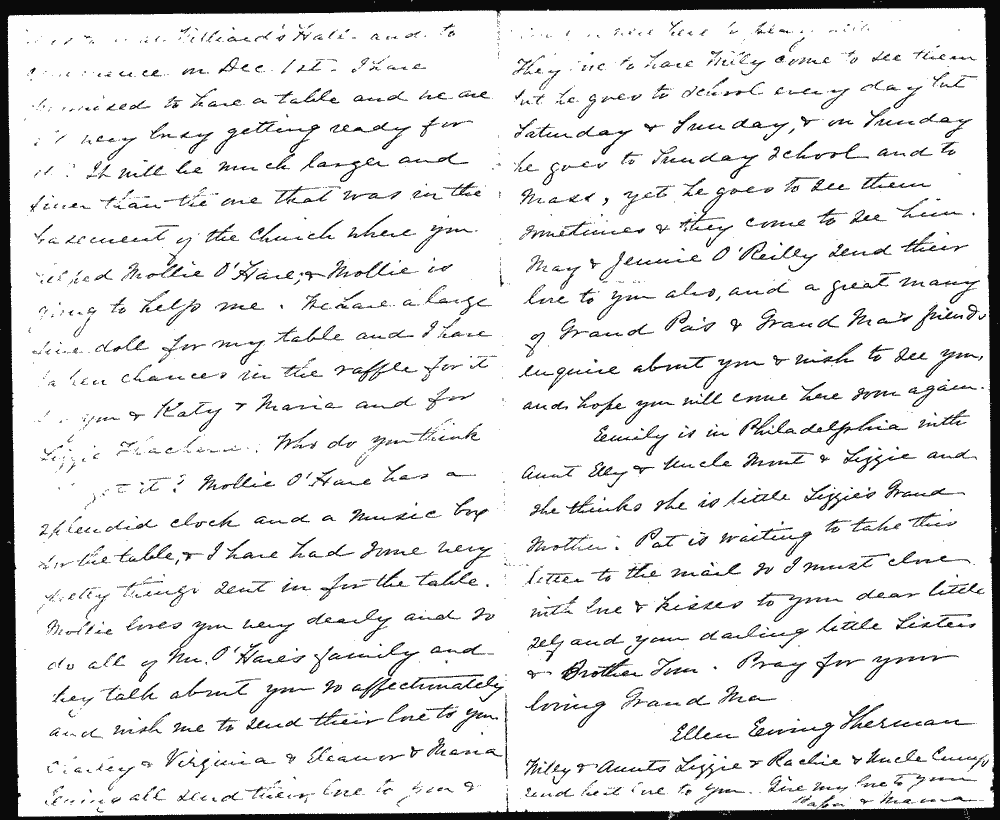 Williard's Hall and to
on Dec. 1st. I have
promised to have a table and we are
all very busy getting ready for
it. It will be much larger and
finer than the one that was in the
basement of the Church where you
helped Mollie O'Hare, & Mollie is
going to help me. We have a large
fine doll for my table and I have
taken chances in the raffle for it
for you & Katy & Maria and for
Lizzie Who do you think
got it? Mollie O'Hare has a
splendid clock and a music box
for the table, & I have had some very
pretty things sent in for the table.
Mollie loves you very dearly and so
do all of Mr. O'Hare's family and
they talk about you so affectionately
and wish me to send their love to you
Charley & Virginia & Eleanor & Maria
Ewing all send their love to you &
here to play with
They love to have Wily come to see them
but he goes to school every day but
Saturday & Sunday, & on Sunday
he goes to Sunday School and to
Mass, yet he goes to see them
sometimes & they come to see him.
May & Jennie O'Reilly send their
love to you also, and a great many
of Grand Pa's & Grand Ma's friends
enquire about you & wish to see you,
and hope you will come here soon again.
Emily is in Philadelphia with
Aunt Elly & Uncle Mont & Lizzie and
she thinks she is little Lizzie's Grand
Mother. Pat is waiting to take this
letter to the mail so I must close
with love & kisses to your dear little
self and your darling little Sisters
& Brother Tom. Pray for your
loving Grand Ma
Ellen Ewing Sherman
Wiley & Aunts Lizzie & Rachie & Uncle Cump
send best love to you. Give my love to your
Papa & Mama